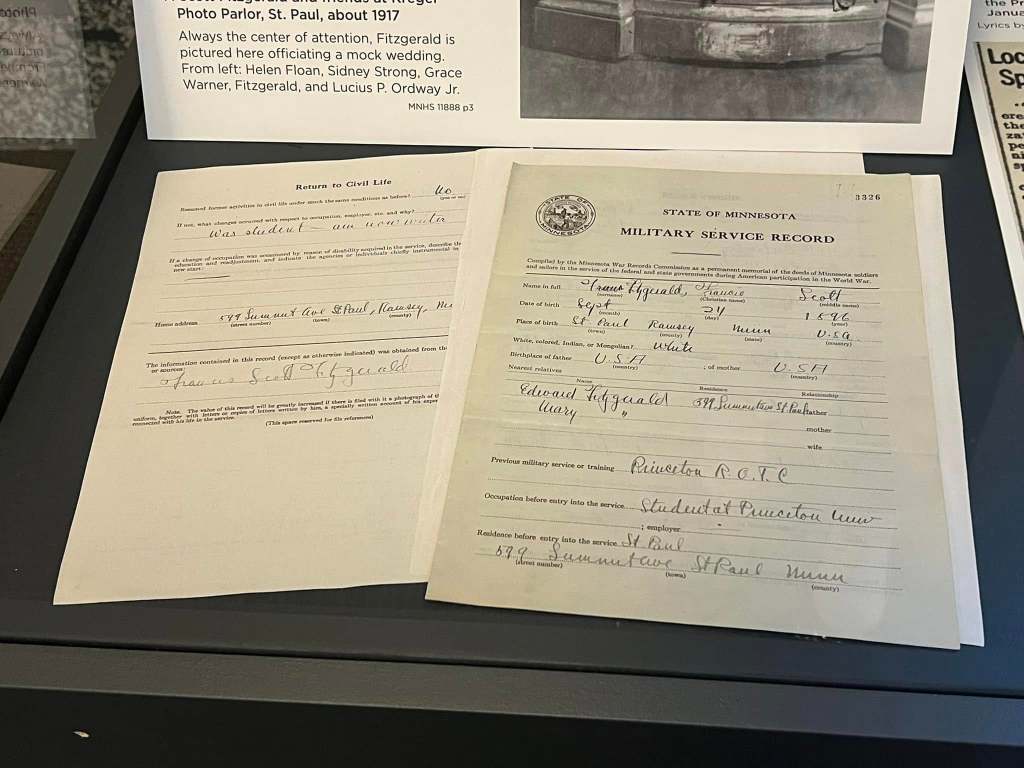 Photo Parlor, St. Paul, about 1917
Always the center of attention, Fitzgerald is
pictured here officiating a mock wedding.
From left: Helen Floan, Sidney Strong, Grace
Warner, Fitzgerald, and Lucius P. Ordway Jr.
MNHS 11888 p3
Return to Civil Life
Resumed former activities in civil life under much the same conditions as before? No
(yes or no)
If not, what changes occurred with respect to occupation, employer, etc. and why?
Was student – am now writer
If a change of occupation was occasioned by reason of disability acquired in the service, describe the
education and readjustment, and indicate the agencies or individuals chiefly instrumental in
new start:
Home address 599 Summit Ave St Paul, Ramsey,
(street number) (town) (county)
The information contained in this record (except as otherwise indicated) was obtained from the
or sources:
Francis Scott Fitzgerald
Note. The value of this record will be greatly increased if there is filed with it a photograph of
uniform, together with letters or copies of letters written by him, a specially written account of his
connected with his life in the service.
(This space reserved for file references)
3326
STATE OF MINNESOTA
STATE OF MINNESOTA
MILITARY SERVICE RECORD
Compiled by the Minnesota War Records Commission as a permanent memorial of the deeds of Minnesota soldiers
and sailors in the service of the federal and state governments during American participation in the World War.
Name in full Fitzgerald, Francis Scott
(surname) (Christian name) (middle name)
Date of birth Sept 24 1896
(month) (day) (year)
Place of birth St Paul Ramsey Minn U.S.A.
(town) (county) (state) (country)
White, colored, Indian, or Mongolian? White
Birthplace of father U.S.A ; of mother U.S.A
(country) (country)
Nearest relatives
Name Residence Relationship
Edward Fitzgerald 599 Summit Ave St Paul father
Mary " mother
wife
Previous military service or training Princeton R.O.T.C
Occupation before entry into the service Student at Princeton Univ
; employer
Residence before entry into the service St Paul
599 Summit Ave St Paul Minn
(street number) (town) (county)
the Pr
Janua
Lyrics by
Loc
Sp